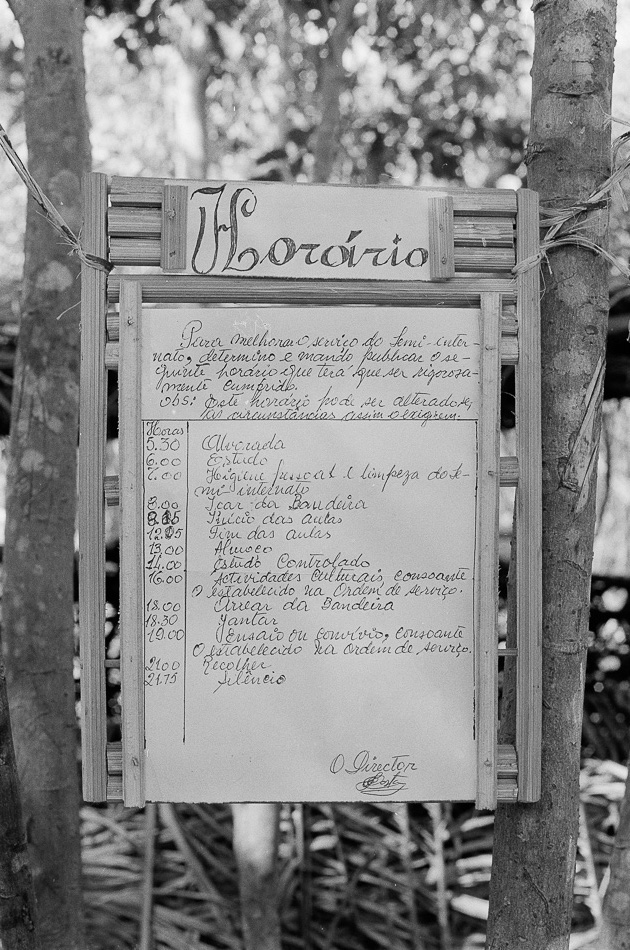 Horário
Para melhorar o serviço do Semi-inter-
nato, determino e mando publicar o se-
guinte horário que terá que ser rigorosa-
mente cumprido.
Obs: Este horário pode ser alterado se,
as circunstâncias assim o exigirem.
Horas
5.30 Alvorada
6.00 Estudo
7.00 Higiene pessoal e limpeza do Se-
mi-internato
8.00 Içar da Bandeira
8.15 Início das aulas
12.05 Fim das aulas
13.00 Almoço
14.00 Estudo Controlado
16.00 Actividades Culturais, consoante
O estabelecido na Ordem de serviço.
18.00 Arrear da Bandeira
18.30 Jantar
19.00 Ensaio ou convívio, consoante
O estabelecido na ordem de serviço.
21.00 Recolher
21.15 Silêncio
O Director